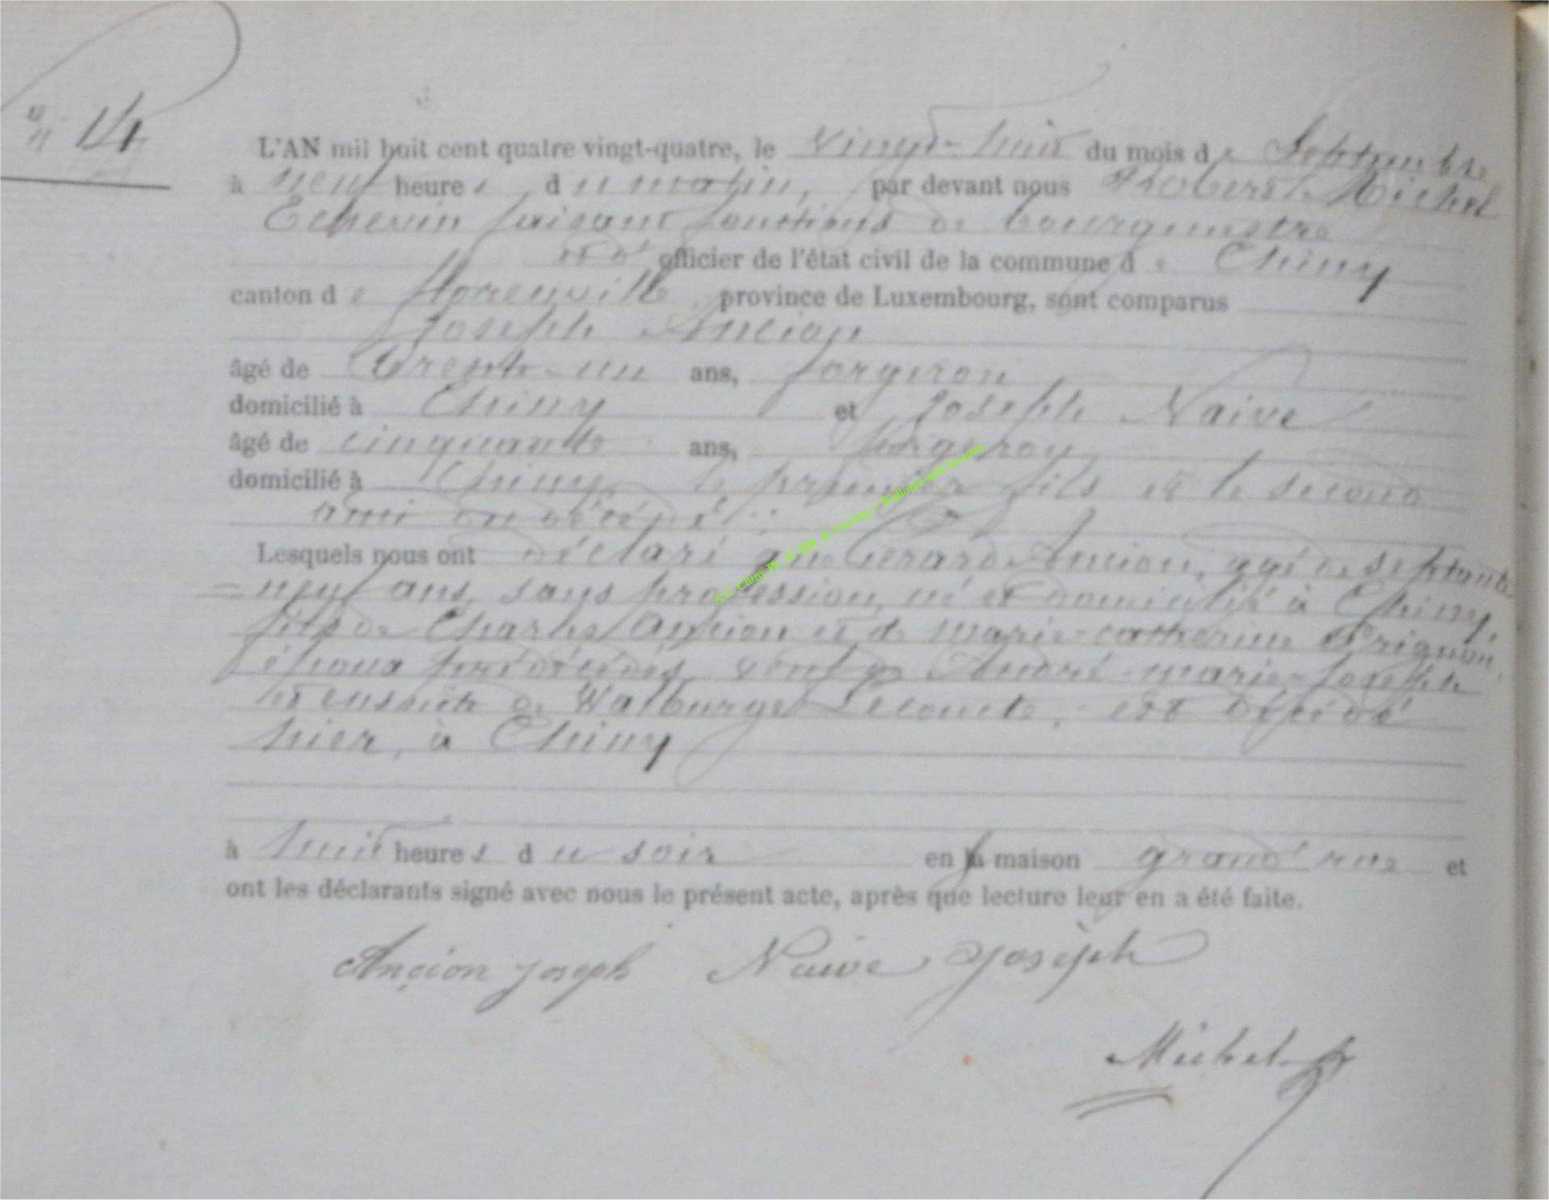 n° 14
L'AN mil huit cent quatre vingt-quatre, le vingt-huit du mois de Septembre
à neuf heures, du matin, par devant nous Robert Michel
Echevin faisant fonctions de bourgmestre
officier de l'état civil de la commune de Chiny
canton de florenville province de Luxembourg, sont comparus
Joseph Ancion
âgé de trente-un ans, forgeron
domicilié à Chiny et Joseph Naive
âgé de cinquante ans, forgeron
domicilié à Chiny, le premier fils et le second
ami du décédé
Lesquels nous ont déclaré que Gérard Ancion, agé de septante
=neuf ans, sans profession, né et domicilié à Chiny,
fils de Charles Ancion et de Marie-catherine Prignon,
époux prédécédés, veuf de André marie-Joseph
et ensuite de Walburge Lecomte, est décédé
hier, à Chiny
à huit heures du soir en la maison grand'rue et
ont les déclarants signé avec nous le présent acte, après que lecture leur en a été faite.
Ancion joseph Naive Joseph
Michel